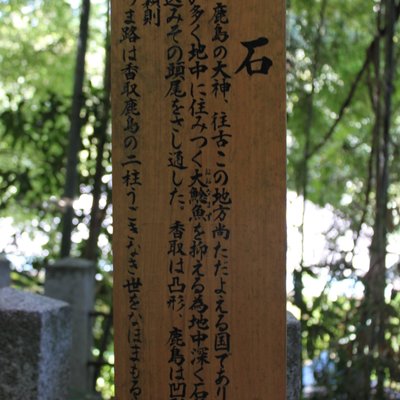 石
鹿島の大神、往古この地方尚たたよえる国であり
多く地中に住みつく大鯰魚を抑える為地中深く石
込みその頭尾をさし通した。香取は凸形、鹿島は凹
則
ま路は香取鹿島の二柱うごきなき世をなほまもる